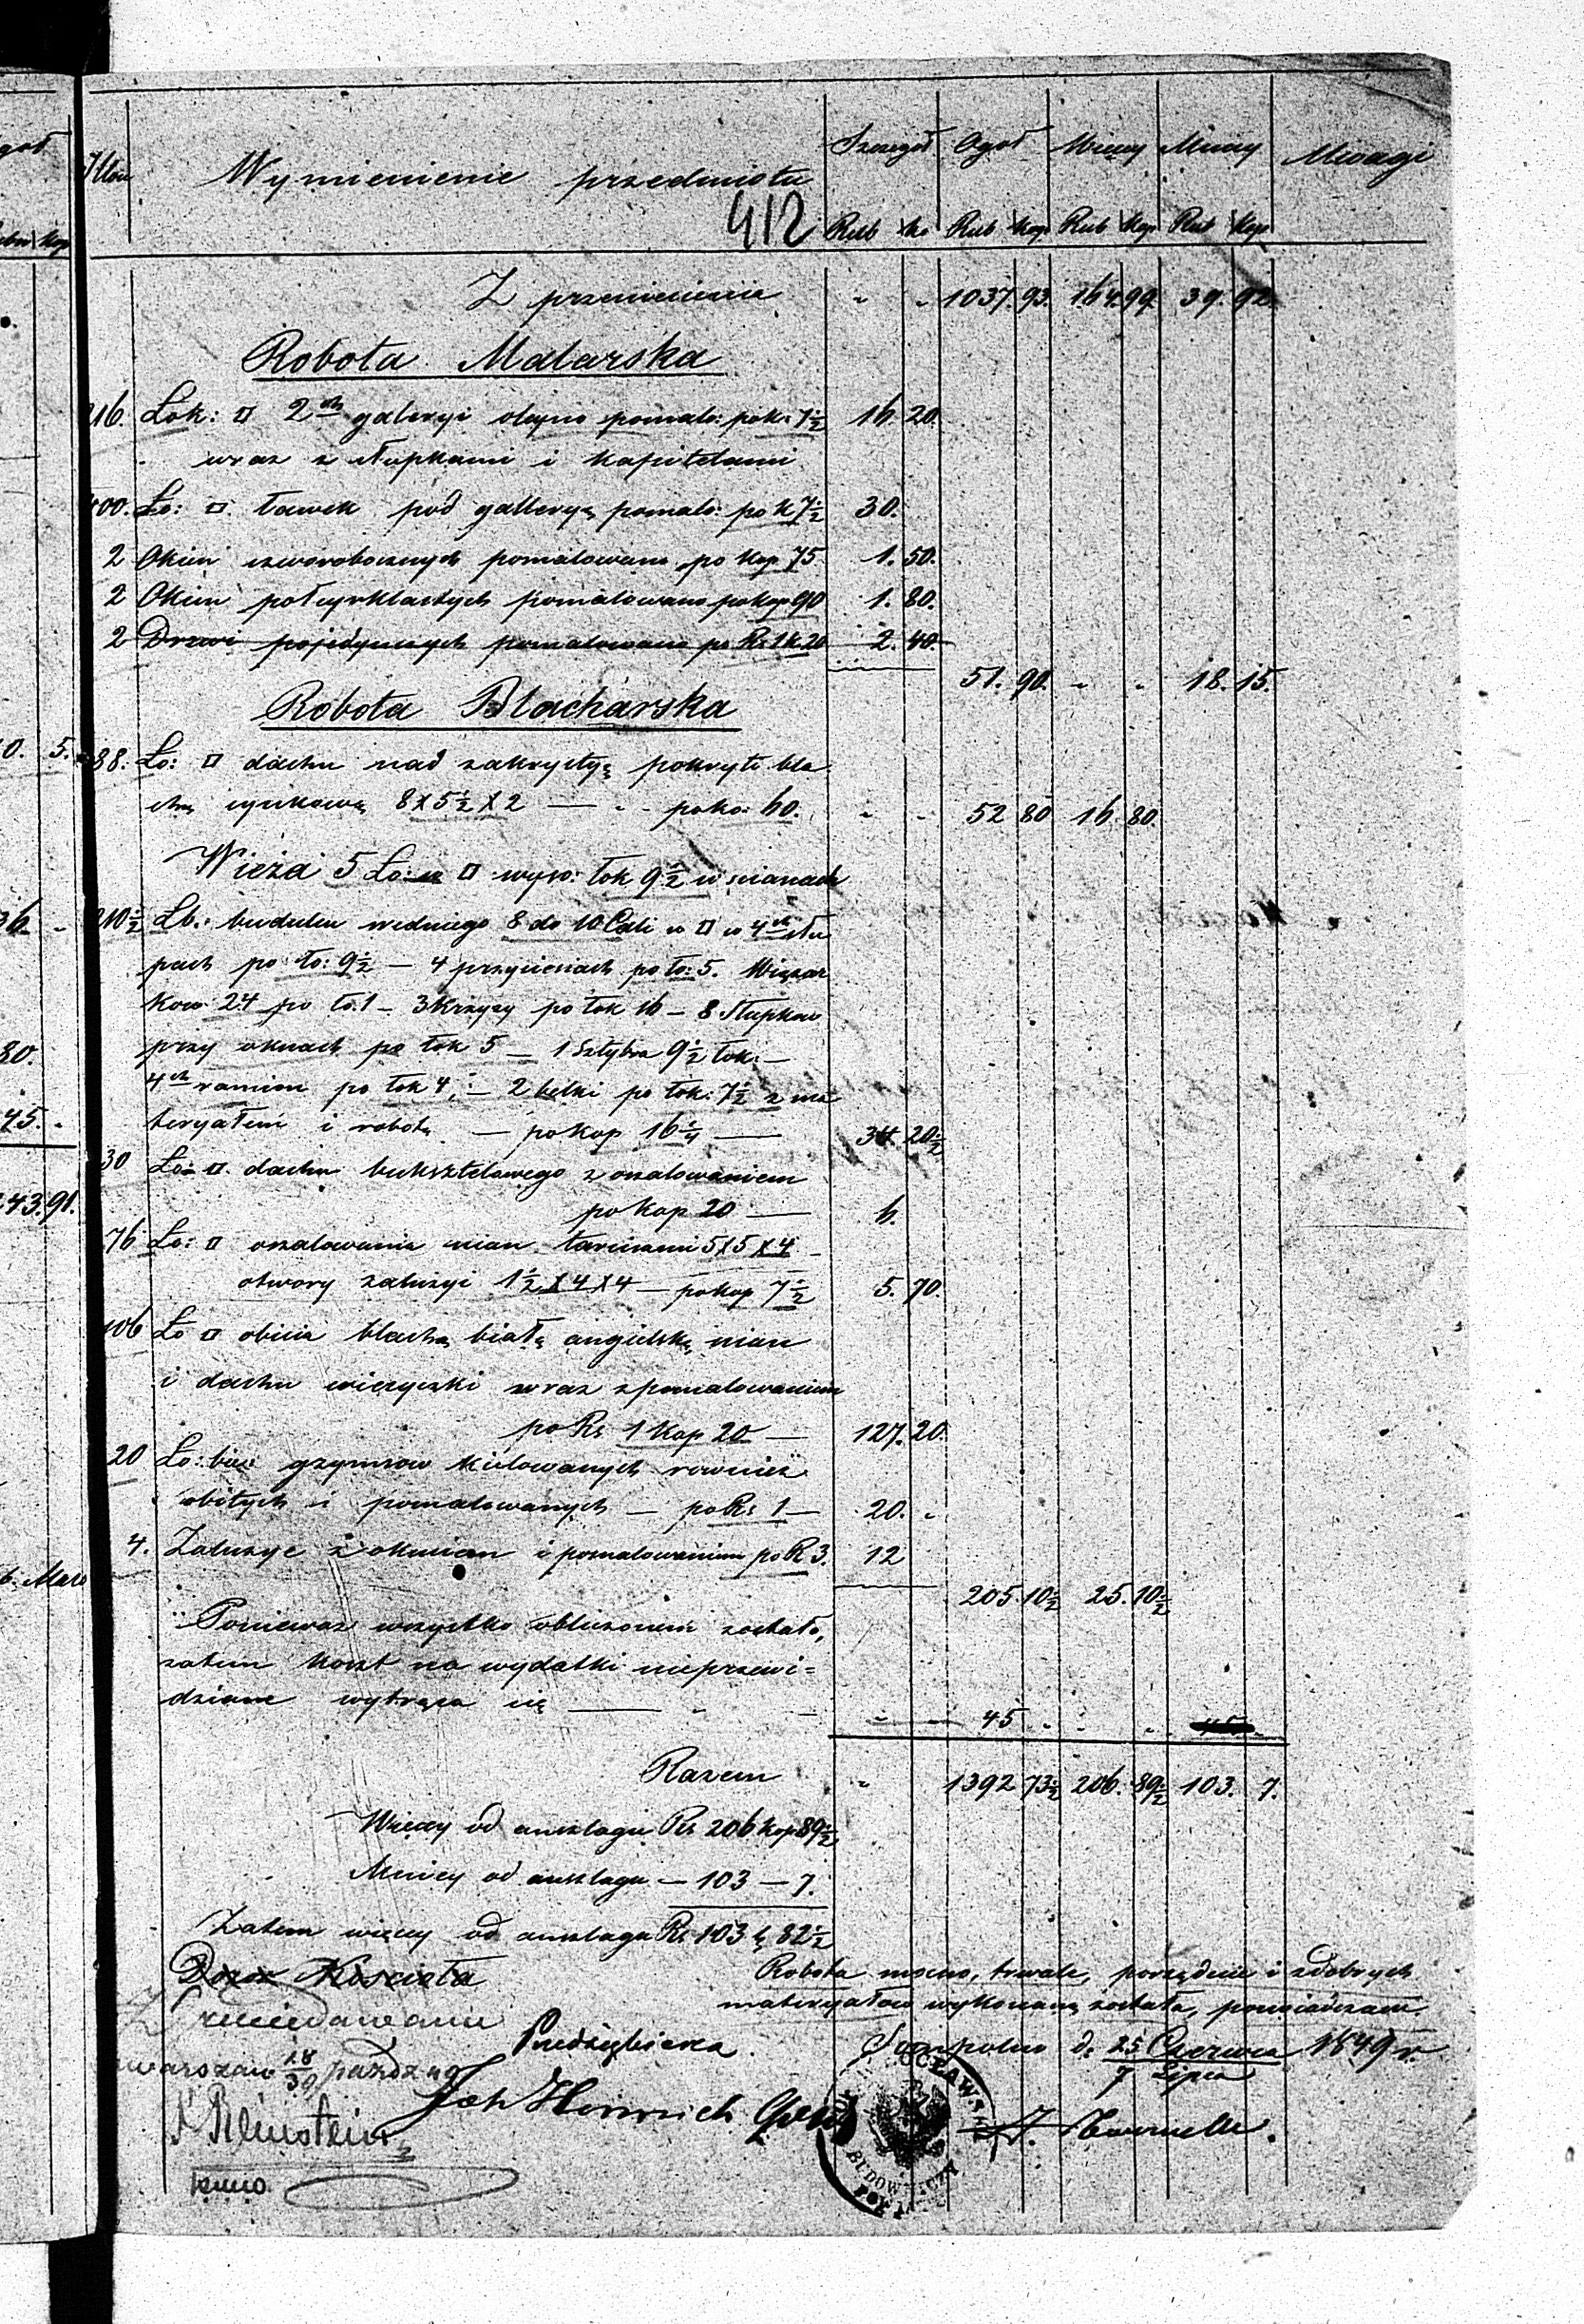 Ilość Wymienienie przedmiotu Szczegół Ogół Więcej Mniej Uwagi
412
Rub Ko Rub Kop Rub Kop Rub Kop
Z przeniesienia " " 1037. 93. 164. 99. 39. 92.
Robota Malarska
216. Łok: □ 2ch galeryi olejno pomalo: po k: 7½ 16. 20.
wraz z słupkami i kapitelami
400. Ło: □ ławek pod galleryą pomalo: po k 7½ 30.
2 Okien czworobocznych pomalowano po kop 75 1. 50.
2 Okien połcyrklastych pomalowano po kop 90 1. 80.
2 Drzwi pojedynczych pomalowano po Rs 1 k. 20 2. 40.
51. 90. " " 18. 15.
Robota Blacharska
88. Ło: □ dachu nad zakrystyą pokryto bla
chą cynkową 8 X 5½ X 2 — " - po ko: 60. " " 52 80 16. 80.
Wieża 5 Ło: w □ wyso: łok 9½ w scianach
210½ Łb: budulcu sredniego 8 do 10 Cali w □ w 4ch słu
pach po ło: 9½ — 4 przyciesiach po ło: 5. Wiązar
kow 24 po ło. 1 — 3 Krzyży po łok 16 — 8 Słupkow
przy oknach po łok 5 — 1 Sztybra 9½ łok: —
4ch ramion po łok 4, — 2 belki po łok: 7½ z ma
teryałem i robotą — po kop 16¼ — 34. 20½
30 Ło: □ dachu buksztelowego z oszalowaniem
po kop 20 — 6.
76 Ło: □ oszalowania scian tarcicami 5 X 5 X 4 —
otwory żaluzyi 1½ X 4 X 4 — po kop 7½ 5. 70.
106 Ło □ obicia blachą białą angielską scian
i dachu wieżyczki wraz z pomalowaniem
po Rs 1 Kop 20 — 127. 20.
20 Ło: bie: gzymsow kielowanych rownież
obitych i pomalowanych — po Rs 1 — 20. "
4. Żaluzye z okuciem i pomalowaniem po R 3. 12
205. 10½ 25. 10½
Ponieważ wszystko obliczonem zostało,
zatem koszt na wydatki nieprzewi=
dziane wytrąca się — " — " " 45 " " " 45 "
Razem " 1392 73½ 206. 89½ 103. 7.
Więcej od anszlagu Rs 206 kop 89½
Mniej od anszlagu — 103 — 7.
Zatem więcej od anszlagu Rs 103 k 82½
Dozor Kościoła Robota mocno, trwale, porządnie i z dobrych
materyałow wykonaną została, poswiadczam.
Przedsiębiorca Sompolno d. 25 Czerwca / 7 Lipca 1849 r.
Warszaw 18/30 pazdz 49
Joh Heinrich
BUDOWNICZY
POW